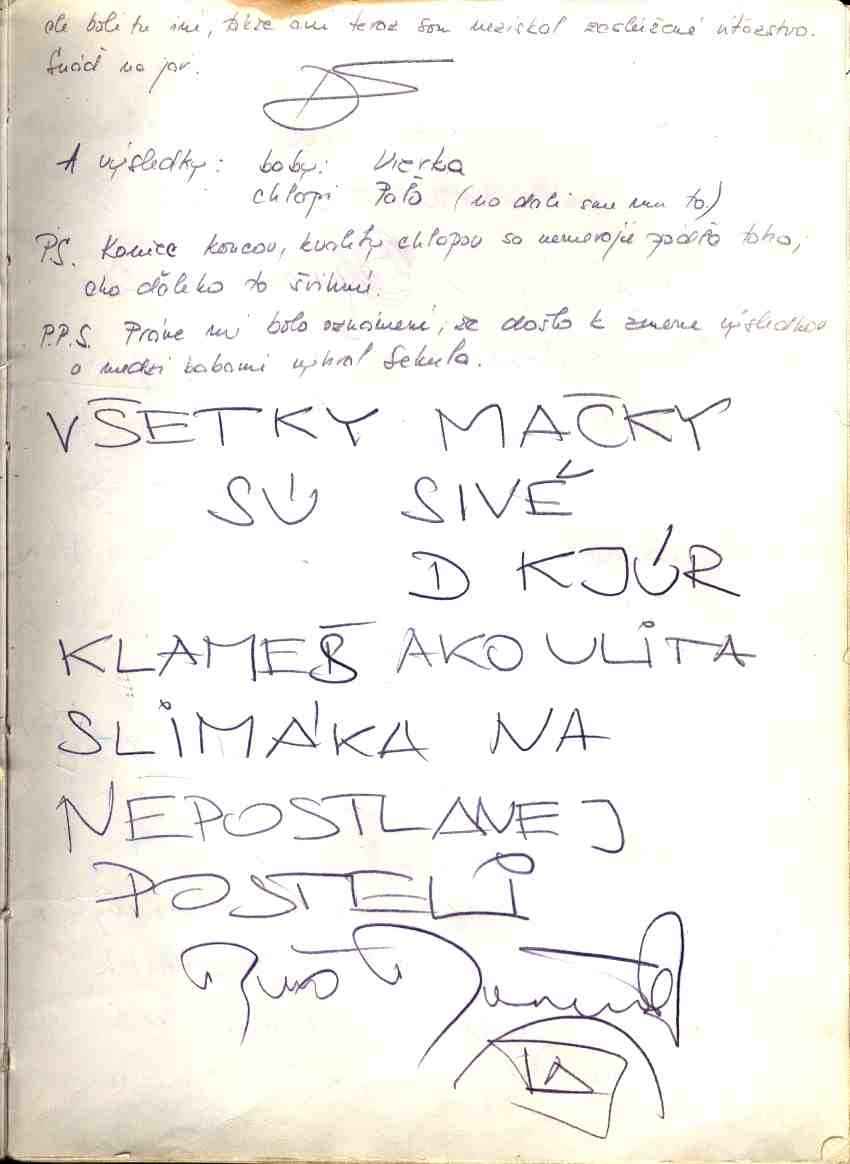 ale boli tu iní, takže ani teraz som nezískal zaslúžené víťazstvo.
Snáď na jar.
A výsledky: baby: Vierka
chlapi Paľo (no dali sme mu to)
P.S. Koniec koncov, kvality chlapov sa nemerajú podľa toho,
ako ďaleko to švihnú.
P.P.S. Práve mi bolo oznámené, že došlo k zmene výsledkov
a medzi babami vyhral Sekula.
VŠETKY MAČKY
SÚ SIVÉ
D KJÚR
KLAMEŠ AKO ULITA
SLIMÁKA NA
NEPOSTLANEJ
POSTELI